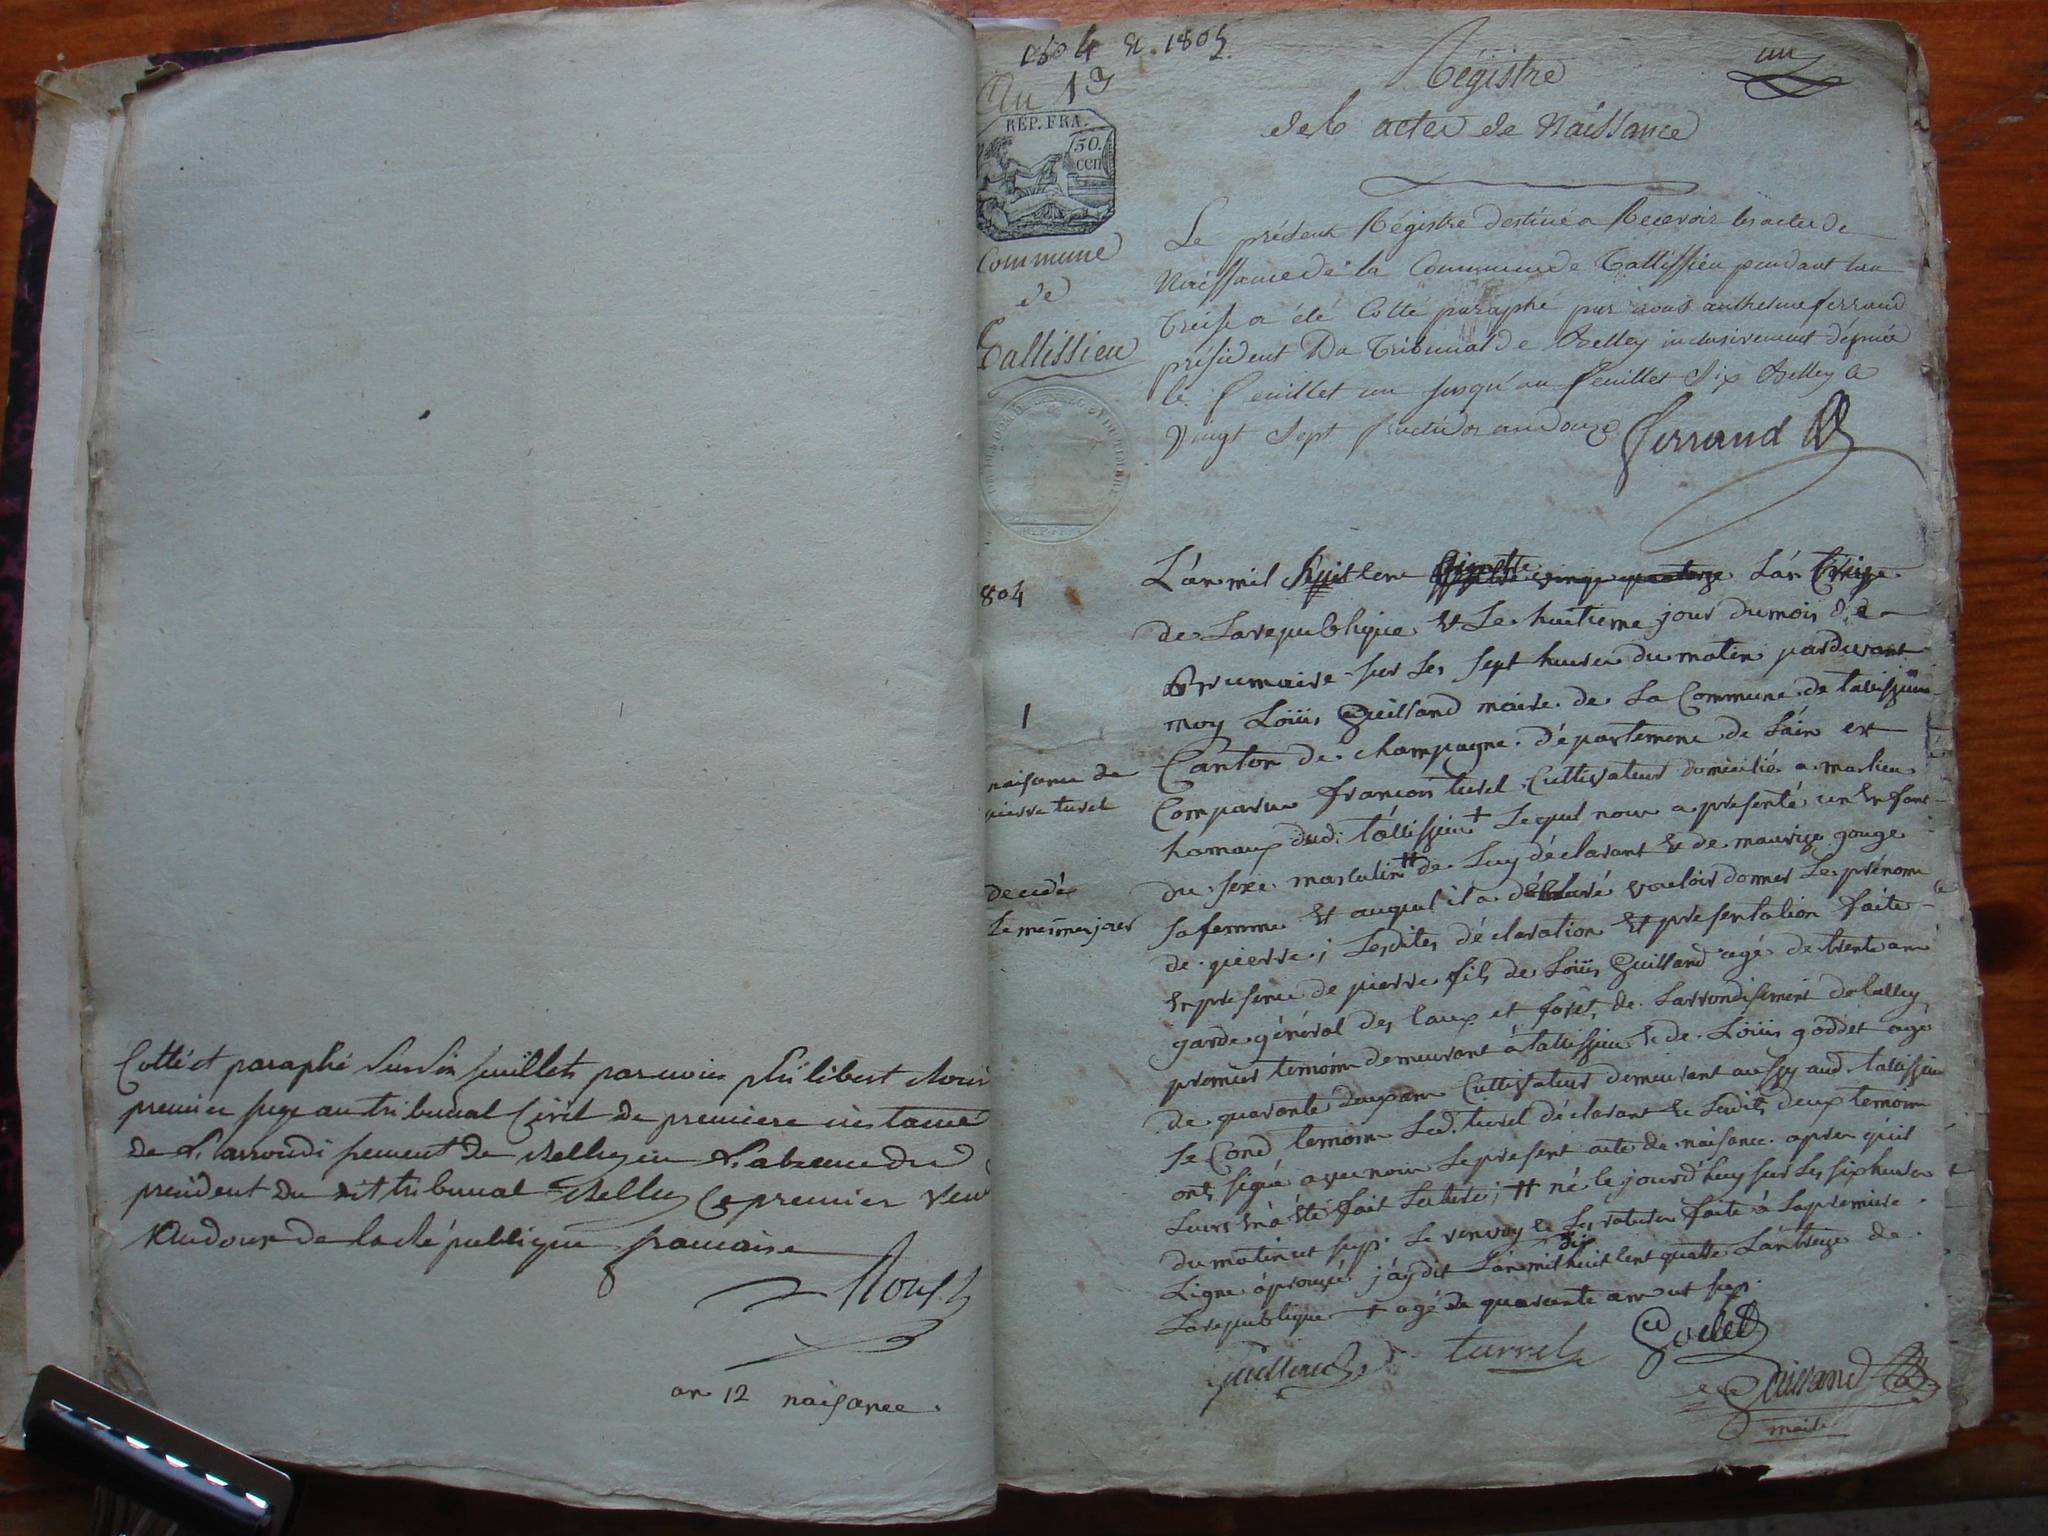 Cotté et paraphé sur six feuillets par nous Philibert
premier juge au tribunal Civil de premiere instance
de L'arrondissement de Belley en L'absence du
president du dit tribunal Belley Ce premier
an douze de la République francaise
an 12 naisance.
1804 & 1805
An 13
REP. FRA.
50. cen
Commune
de
Tallissieu
Registre
un
des actes de Naissance
Le présent Régistre destiné a Recevoir les actes de
Naissance de la Commune de Tallissieu pendant l'an
treise a été Cotté paraphé par nous anthelme ferrand
président Du Tribunal de Belley inclusivement dépuis
le feuillet un jusqu'au feuillet Six Belley le
Vingt Sept fructidor an Douze ferrand
804
1
naisance de
pierre turel
decedé
Le mesme jour
L'an mil huit cen L'an treize
de La republique & Le huitieme jour du mois de
Brumaire sur les sept heures du matin pardevant
moy Loüis Guilland maire de La Commune de tallissieu
Canton de champagne département de L'ain est
Comparu françois turel Cultivateur domicilié a marlieu
hamaux dud. tallissieu + Lequel nous a presenté un Enfant
du sexe masculin ++ de Luy déclarant & de maurize gouge
sa femme Et auquel il a déclaré vouloir donner Le prénom
de pierre ; Lesdites déclaration Et presentation faite
En presence de pierre fils de Loüis Guilland agé de trente ans
garde général des Eaux et forêt de L'arrondisement de belley
premier temoin demeurant á tallissieu & de Loüis goddet agé
de quarante deux ans Cultivateur demeurant aussy aud. tallissieu
se Cond temoin Led. turel déclarant & Lesdits deux temoin
ont signé avec nous Le present acte de naisance apres qu'il
Leurs En á été fait Lecture ; ++ né le jourd'huy sur Les six heures
du matin ut supr. Le renvoy & Les ratures faite á La premiere
Ligne áprouvée j'ay dit L'an mil huit Cent quatre L'an treize de
La republique + agé de quarante ans ut supr.
Guilland turrel Godet
Guilland
maire